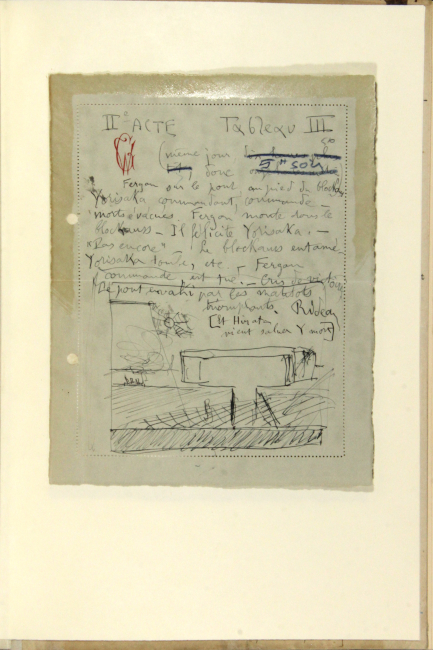 IIe ACTE Tableau III
(même jour
5h soir donc
Fergan sur le pont, au pied du blockhauss
Yorisaka commandant, commande –
"morts" vaches. Fergan monte dans le
blockauss – Il félicite Yorisaka. –
"Pas encore" – le blockauss entamé.
Yorisaka tombe, etc. – Fergan
commande est tué. – Cris de victoire,
le pont envahi par les matelots
triomphants. Rideau
[Lt Hirata
vient saluer Y mort]